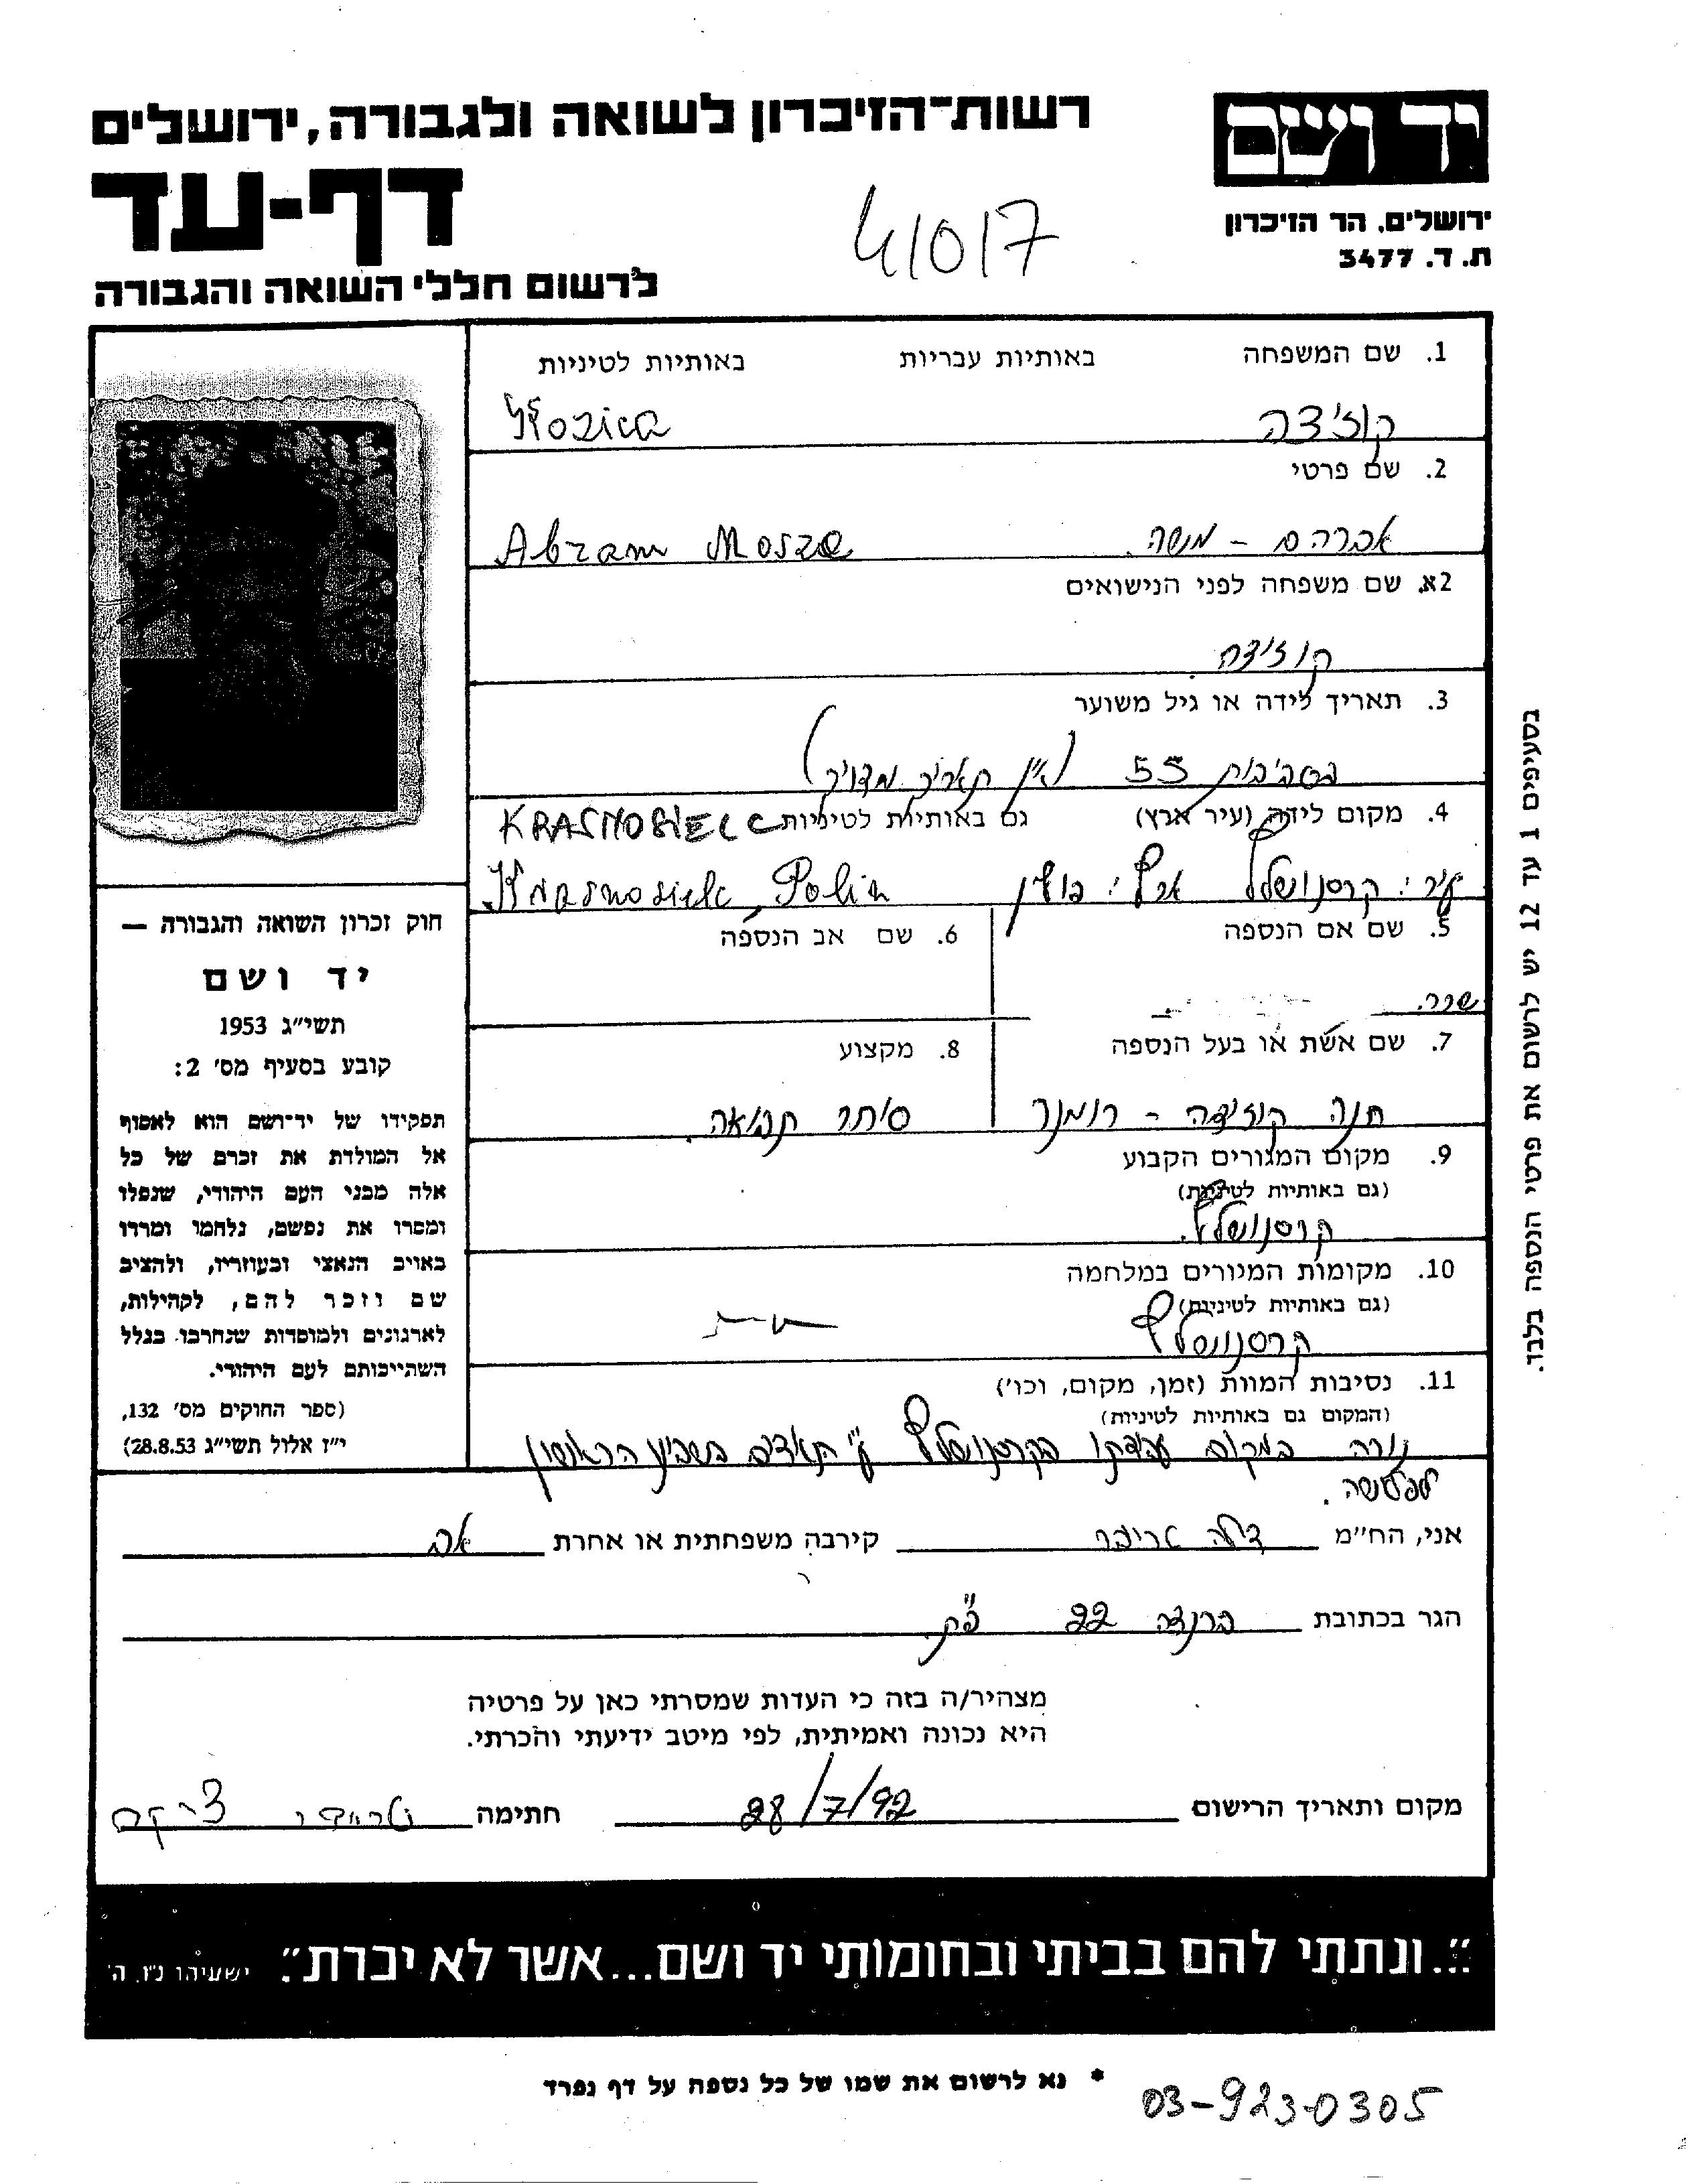 רשות־הזיכרון לשואה ולגבורה, ירושלים
יד ושם
דף-עד
41017
ירושלים, הר הזיכרון
ת. ד. 3477
לרשום חללי השואה והגבורה
1. שם המשפחה באותיות עבריות באותיות לטיניות
קוז'צה Kozica
2. שם פרטי
אברהם - משה Abram Mosze
2א. שם משפחה לפני הנישואים
קוז'צה
3. תאריך לידה או גיל משוער
בסביבות 55 (אין תאריך מדויק)
4. מקום לידה (עיר ארץ) גם באותיות לטיניות
עיר: ארץ: פולין Polin
5. שם אם הנספה
6. שם אב הנספה
שרה.
7. שם אשת או בעל הנספה
8. מקצוע
חנה סוחר תבואה.
9. מקום המגורים הקבוע
(גם באותיות לטיניות)
10. מקומות המגורים במלחמה
(גם באותיות לטיניות)
11. נסיבות המוות (זמן, מקום, וכו')
(המקום גם באותיות לטיניות)
נורה במקום ע"י הראשון
אני, הח"מ קירבה משפחתית או אחרת אב
הגר בכתובת ברנדה 22 פ"ת
מצהיר/ה בזה כי העדות שמסרתי כאן על פרטיה
היא נכונה ואמיתית, לפי מיטב ידיעתי והכרתי.
מקום ותאריך הרישום 28/7/92 חתימה
חוק זכרון השואה והגבורה —
יד ושם
תשי"ג 1953
קובע בסעיף מס' 2:
תפקידו של יד־ושם הוא לאסוף
אל המולדת את זכרם של כל
אלה מבני העם היהודי, שנפלו
ומסרו את נפשם, נלחמו ומרדו
באויב הנאצי ובעוזריו, ולהציב
שם וזכר להם, לקהילות,
לארגונים ולמוסדות שנחרבו בגלל
השתייכותם לעם היהודי.
(ספר החוקים מס' 132,
י"ז אלול תשי"ג 28.8.53)
בסעיפים 1 עד 12 יש לרשום את פרטי הנספה בלבד.
"...ונתתי להם בביתי ובחומותי יד ושם...אשר לא יכרת". ישעיהו נ"ו, ה'
* נא לרשום את שמו של כל נספה על דף נפרד
03-923-0305